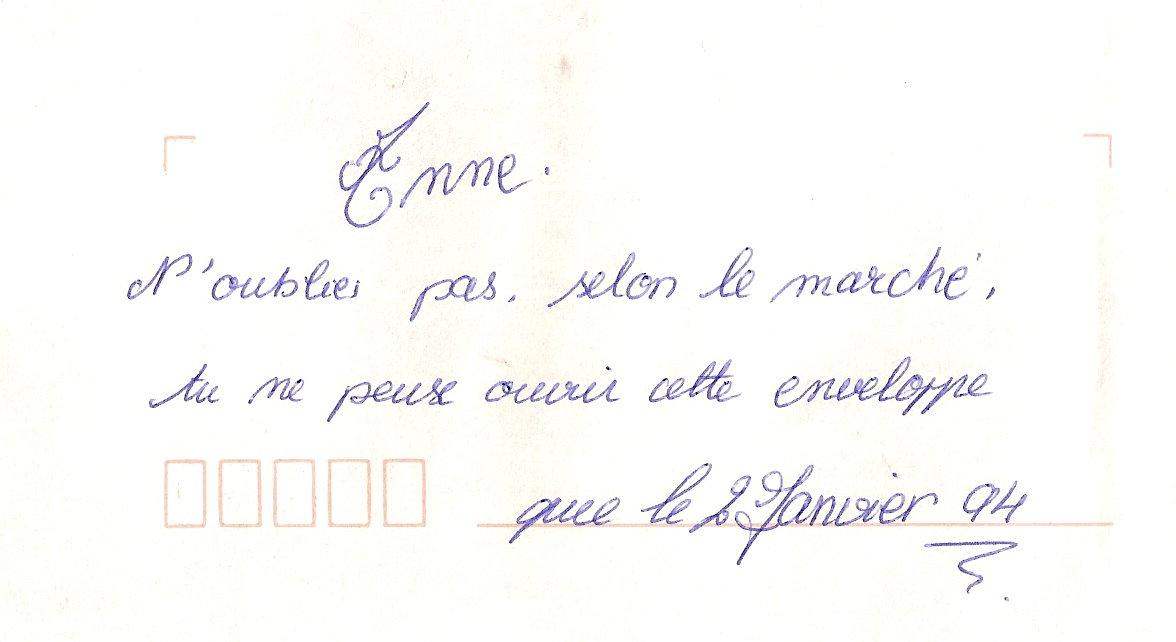 N'oublies pas, selon le marché,
tu ne peux ouvrir cette enveloppe
que le 29 Janvier 94